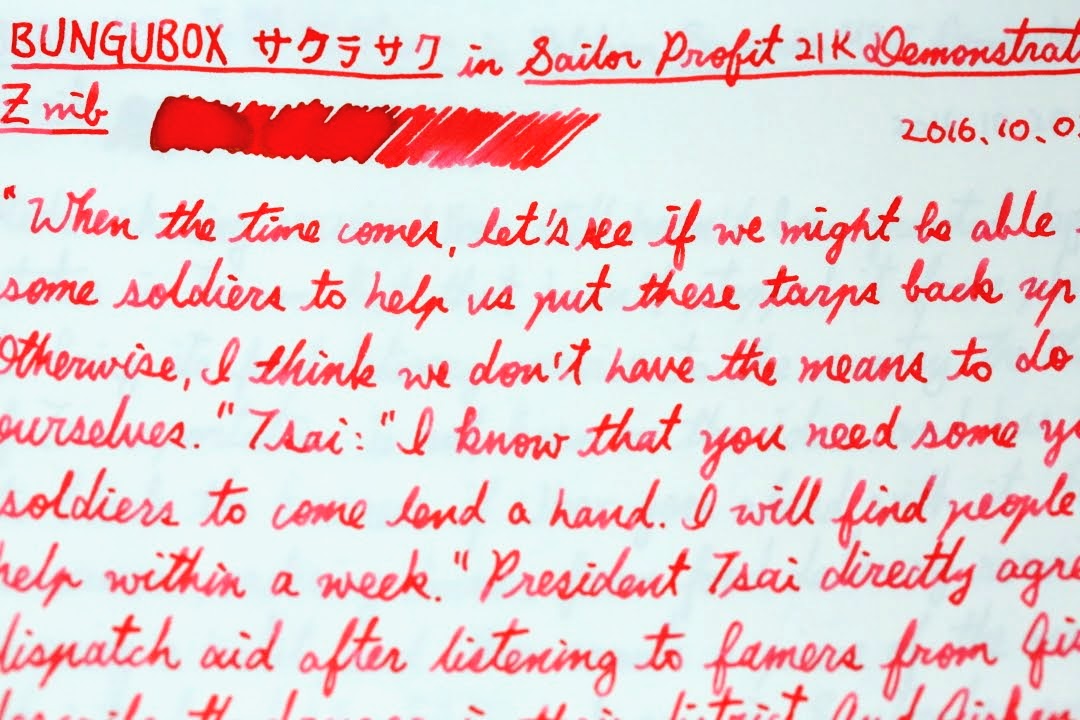 BUNGUBOX サクラサク in Sailor Profit 21K Demonstrat
Z nib
2016.10.0
"When the time comes, let's see if we might be able
some soldiers to help us put these tarps back up
Otherwise, I think we don't have the means to do
ourselves." Tsai: "I know that you need some
soldiers to come lend a hand. I will find people
help within a week." President Tsai directly agre
dispatch aid after listening to famers from
in their district